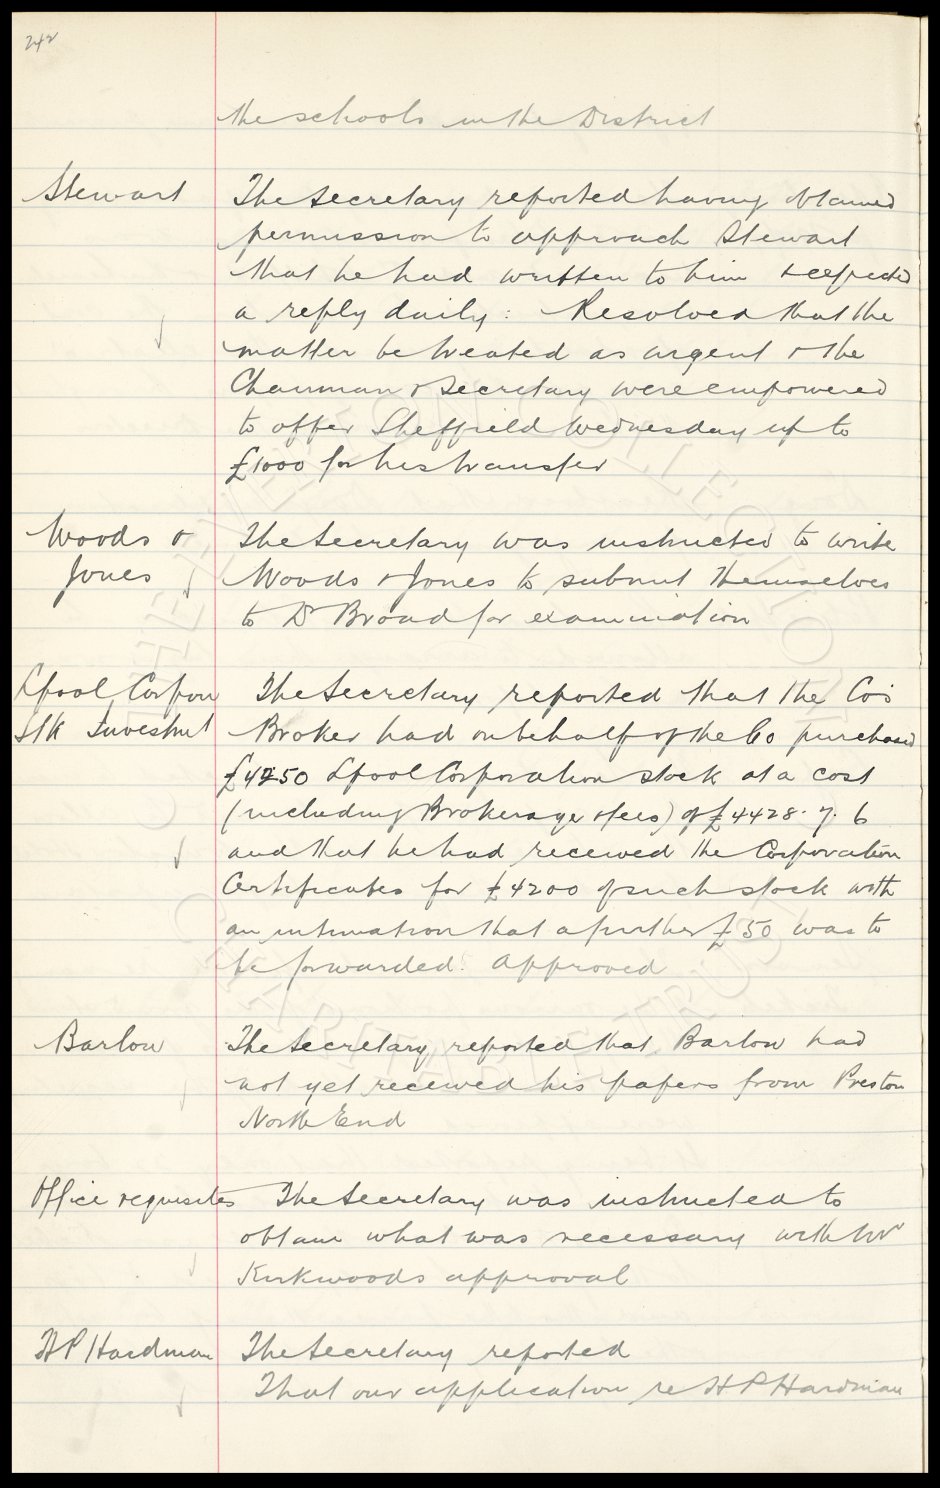 242
the schools in the District
Stewart The Secretary reported having obtained
permission to approach Stewart
that he had written to him & expected
a reply daily: Resolved that the
matter be treated as urgent & the
Chairman & Secretary were empowered
to offer Sheffield Wednesday up to
£1000 for his transfer
Woods & The Secretary was instructed to write
Jones Woods & Jones to submit themselves
to Dr Broad for examination
Lpool Corpon The Secretary reported that the Co's
Stk Investmt Broker had on behalf of the Co purchased
£4250 Lpool Corporation stock at a cost
(including Brokerage & fees) of £4428.7.6
and that he had received the Corporation
Certificates for £4200 of such stock with
an intimation that a further £50 was to
be forwarded: Approved
Barlow The Secretary reported that Barlow had
not yet received his papers from Preston
North End
Office requisites The Secretary was instructed to
obtain what was necessary with Mr
Kirkwoods approval
H P Hardman The Secretary reported
That our application re H P Hardman
THE EVERTON COLLECTION
CHARITABLE TRUST